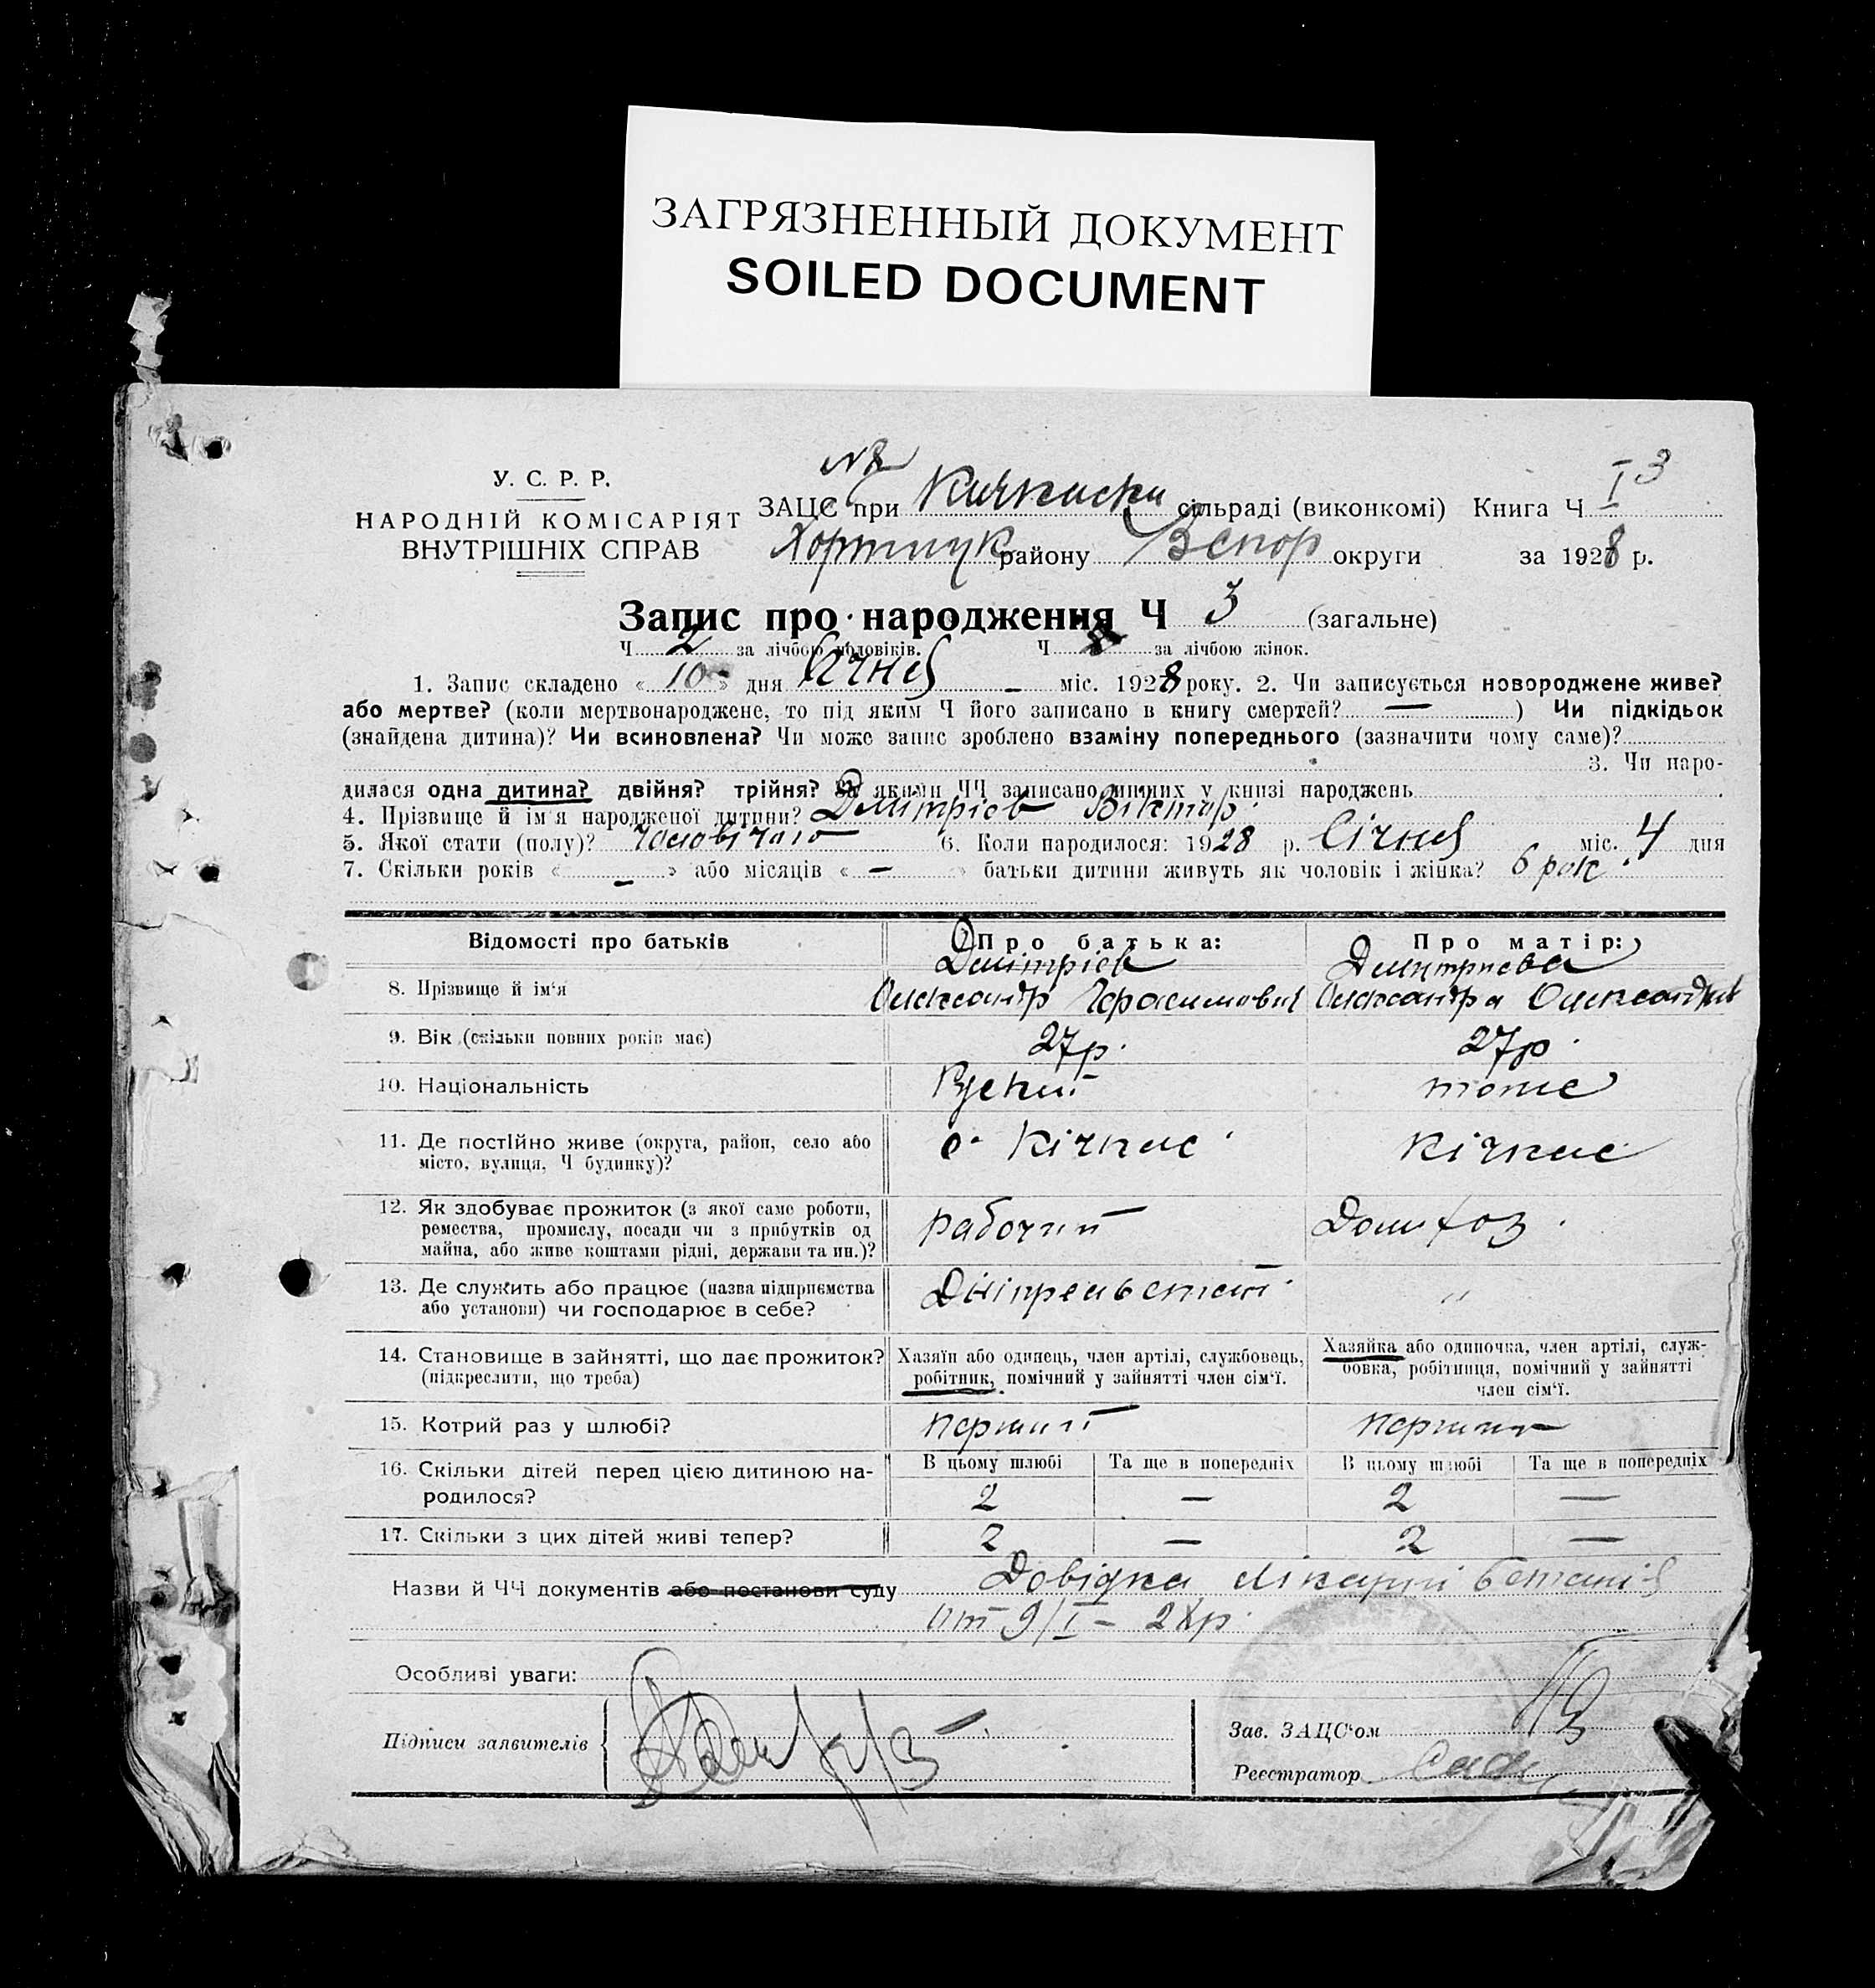 ЗАГРЯЗНЕННЫЙ ДОКУМЕНТ
SOILED DOCUMENT
У. С. Р. Р.
НАРОДНІЙ КОМІСАРІЯТ
ВНУТРІШНІХ СПРАВ
ЗАЦС при Кичкаски сільраді (виконкомі) Книга Ч I 3
Хортицк району Запор округи за 1928 р.
Запис про народження Ч 3 (загальне)
Ч 2 за лічбою чоловіків. Ч за лічбою жінок.
1. Запис складено « 10 » дня Січня – міс. 1928 року. 2. Чи записується новороджене живе?
або мертве? (коли мертвонароджене, то під яким Ч його записано в книгу смертей? — ) Чи підкідьок
(знайдена дитина)? Чи всиновлена? Чи може запис зроблено взаміну попереднього (зазначити чому саме)?
3. Чи наро-
дилася одна дитина? двійня? трійня? За якими ЧЧ записано инших у книзі народжень
4. Прізвище й ім'я народженої дитини? Дмітріев Віктор
5. Якої стати (полу)? чоловічого 6. Коли народилося: 1928 р. Січня міс. 4 дня
7. Скільки років « – » або місяців « – » батьки дитини живуть як чоловік і жінка? 6 рок.
Відомості про батьків Про батька: Про матір:
8. Прізвище й ім'я Дмітріев Олександр Герасимович Дмитриева Олександра Олександрів
9. Вік (скільки повних років має) 27 р. 27 р.
10. Національність Руский тоже
11. Де постійно живе (округа, район, село або
місто, вулиця, Ч будинку)? с. Кічкас Кічкас
12. Як здобуває прожиток (з якої саме роботи,
ремества, промислу, посади чи з прибутків од
майна, або живе коштами рідні, держави та ин.)? рабочий Домохоз.
13. Де служить або працює (назва підприємства
або установи) чи господарює в себе? "
14. Становище в зайнятті, що дає прожиток?
(підкреслити, що треба)
Хазяїн або одинець, член артілі, службовець,
робітник, помічний у зайнятті член сім'ї.
Хазяйка або одиночка, член артілі, служ-
бовка, робітниця, помічний у зайнятті
член сім'ї.
15. Котрий раз у шлюбі? перший перший
В цьому шлюбі Та ще в попередніх В цьому шлюбі Та ще в попередніх
16. Скільки дітей перед цією дитиною на-
родилося? 2 — 2 —
17. Скільки з цих дітей живі тепер? 2 — 2 —
Назви й ЧЧ документів або постанови суду Довідка лікарні Бетанія
от 9/I – 28 р.
Особливі уваги:
Підписи заявителів
Зав. ЗАЦС'ом
Реєстратор